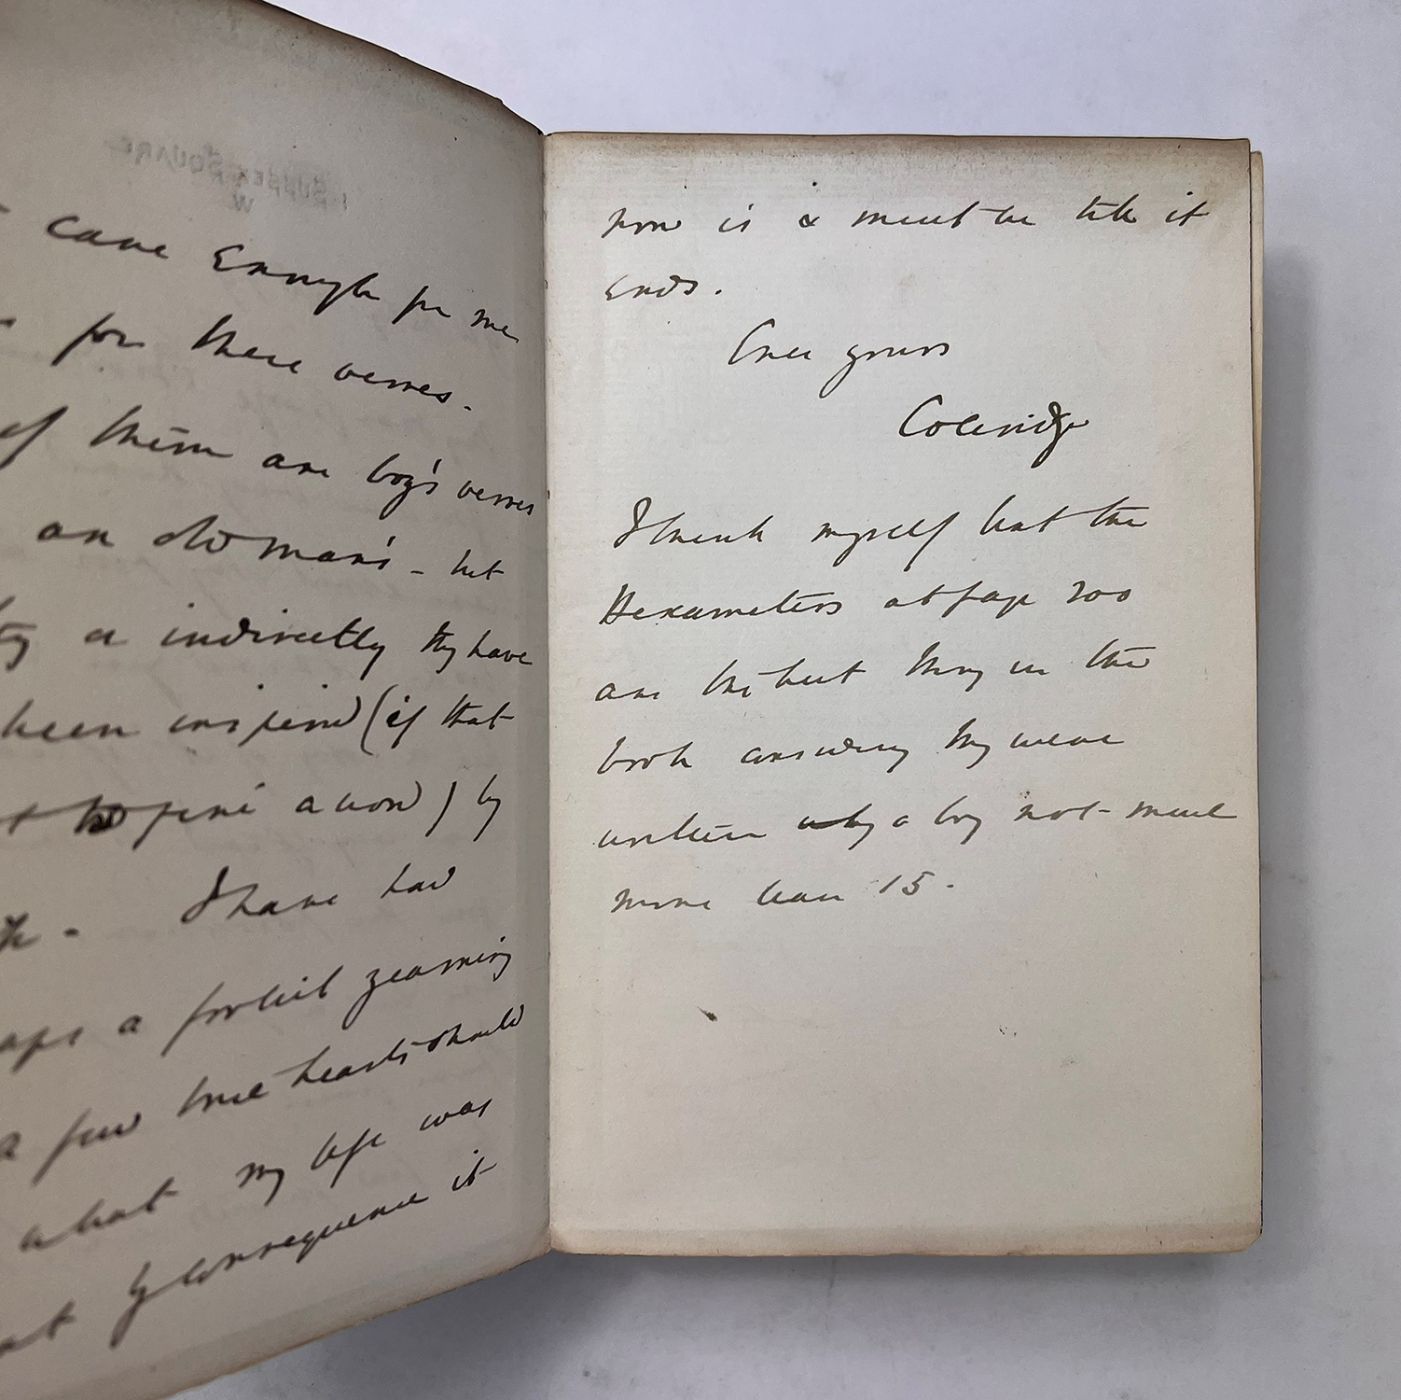 1 SUSSEX SQUARE
W
care enough for me
for these verses.
of them are boy's verses
an old man's - but
or indirectly they have
been inspired (if that
a word) by
I have had
a foolish yearning
a few true hearts should
what my life was
by consequence it
now is & must be till it
ends.
Ever yours
Coleridge
I think myself that the
Hexameters at page 200
are the best thing in the
book considering they were
written by a boy not much
more than 15.